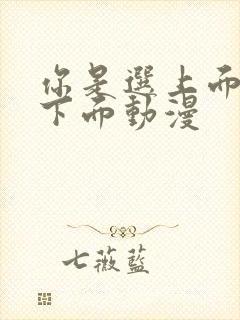 你是選上而
下而動漫
七薇藍